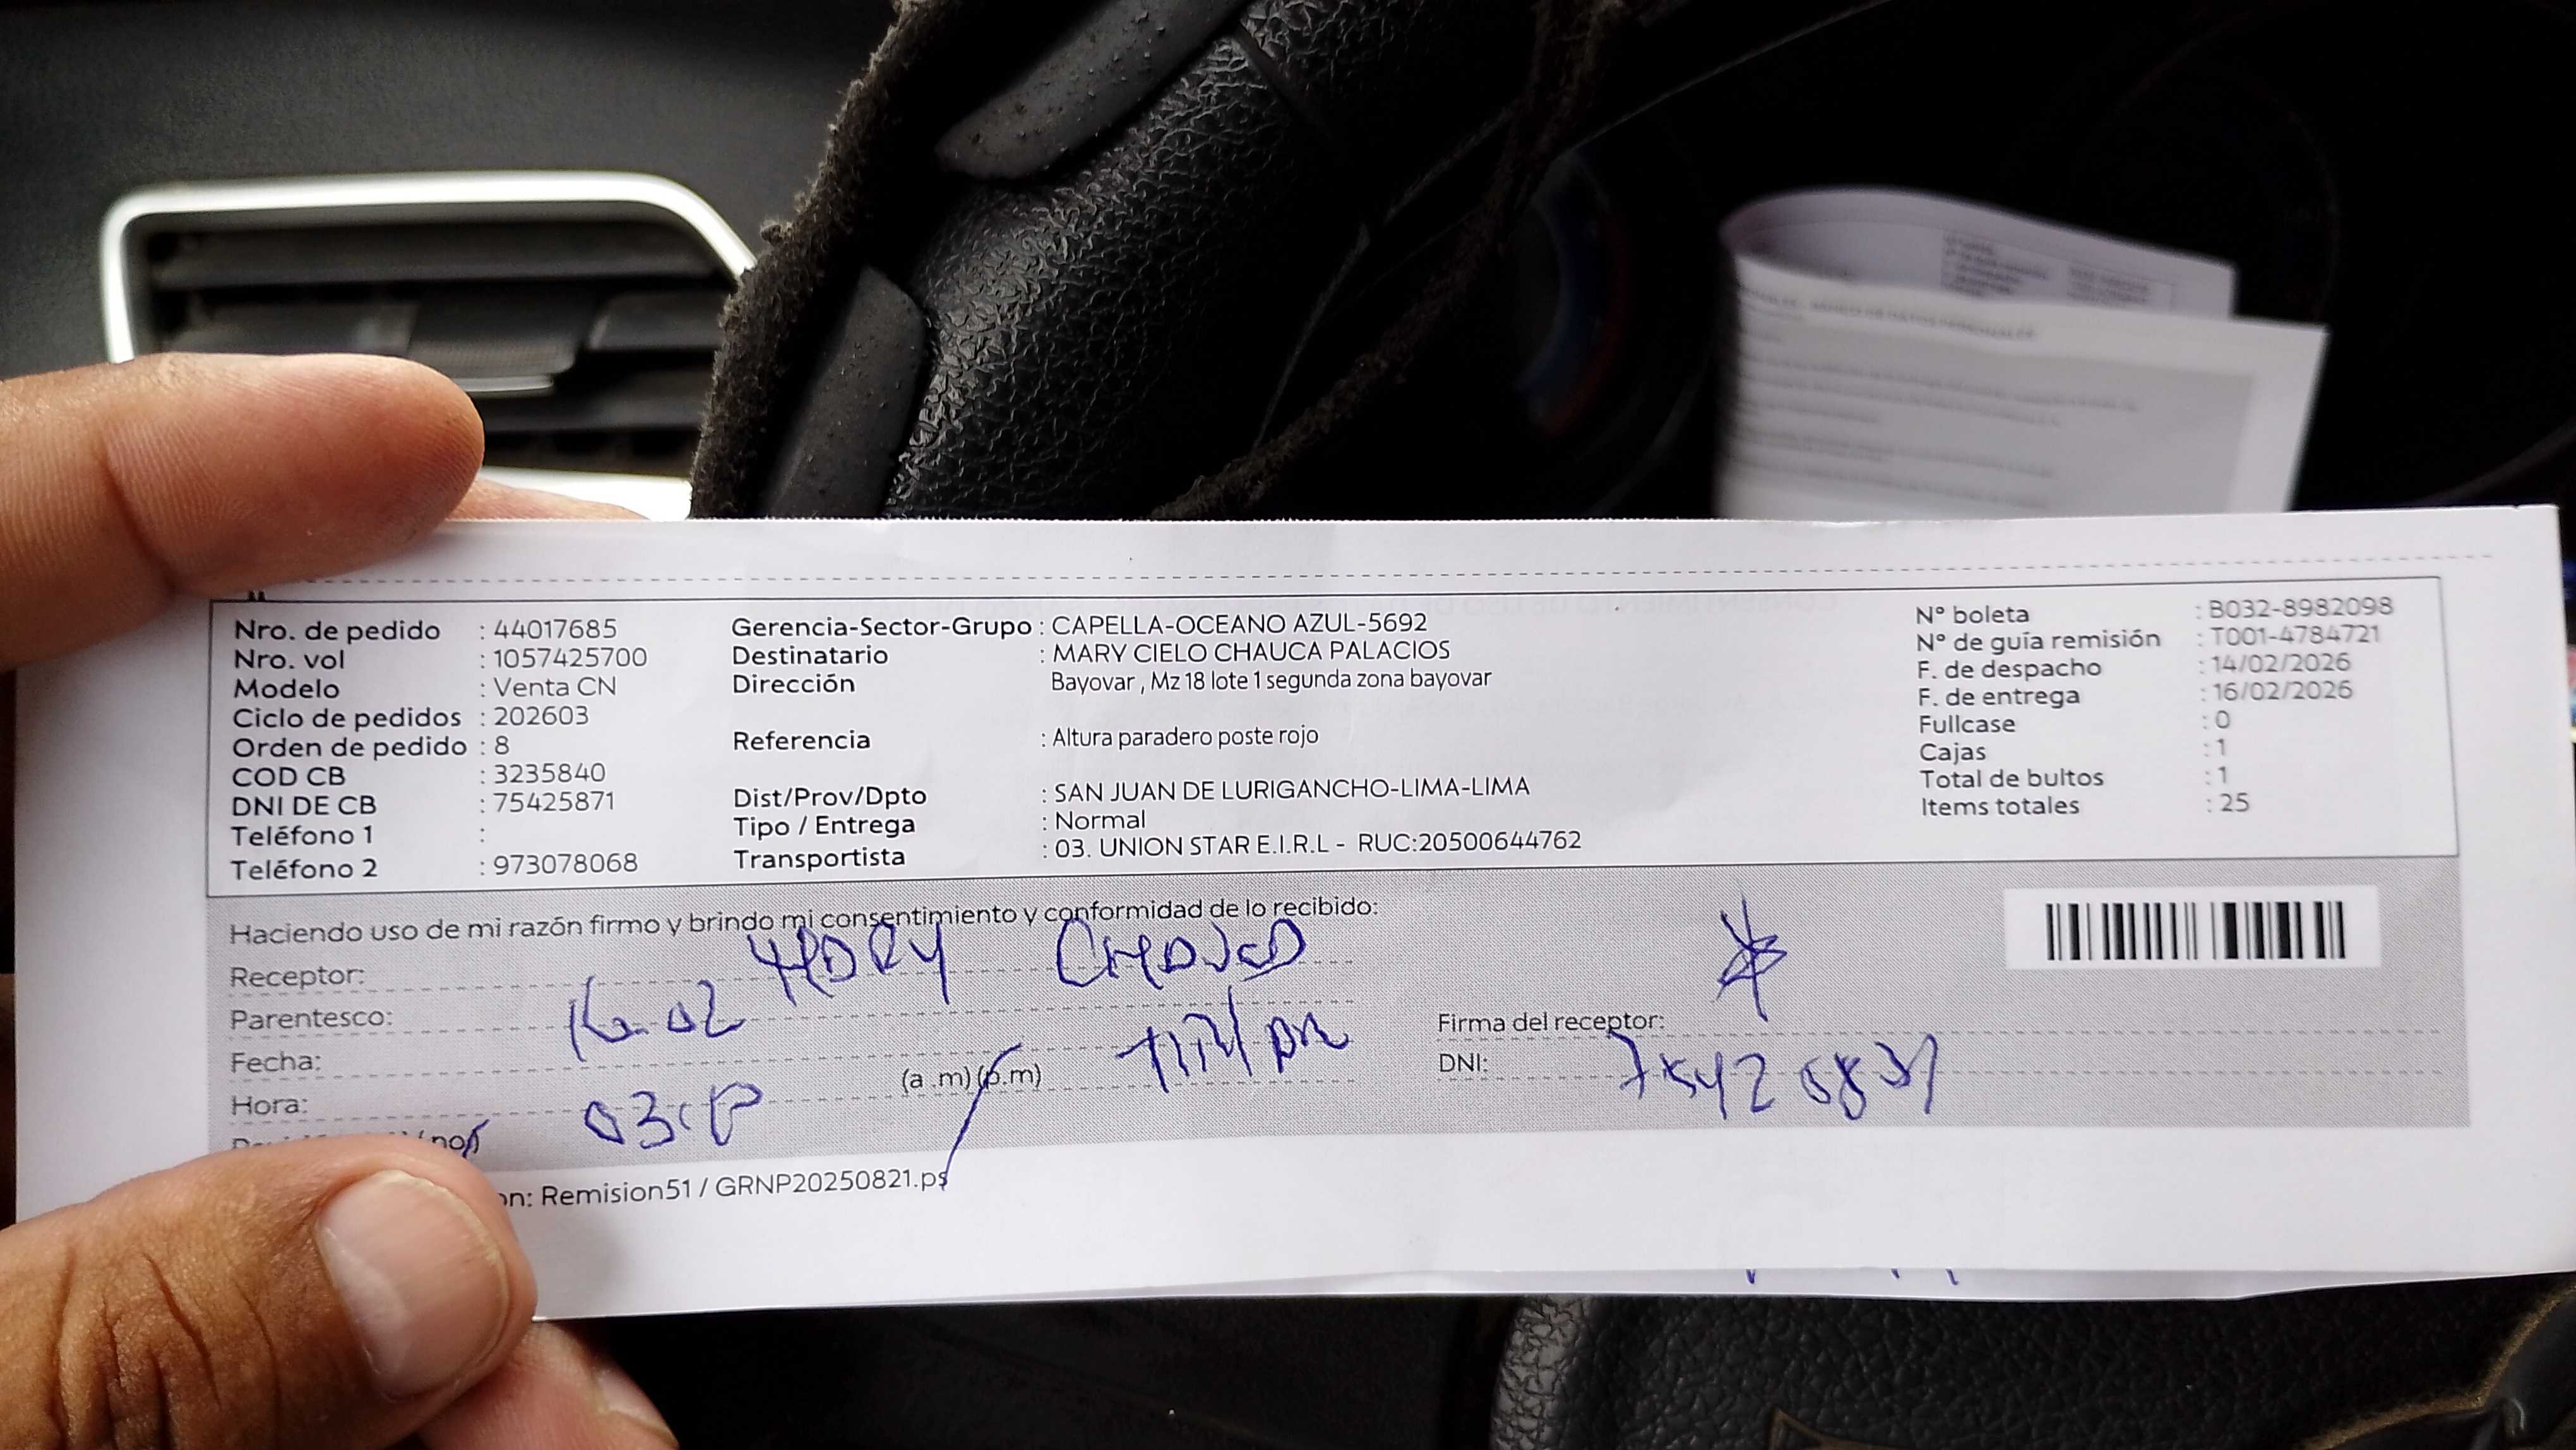 Nro. de pedido : 44017685
Nro. vol : 1057425700
Modelo : Venta CN
Ciclo de pedidos : 202603
Orden de pedido : 8
COD CB : 3235840
DNI DE CB : 75425871
Teléfono 1 :
Teléfono 2 : 973078068
Gerencia-Sector-Grupo : CAPELLA-OCEANO AZUL-5692
Destinatario : MARY CIELO CHAUCA PALACIOS
Dirección Bayovar , Mz 18 lote 1 segunda zona bayovar
Referencia : Altura paradero poste rojo
Dist/Prov/Dpto : SAN JUAN DE LURIGANCHO-LIMA-LIMA
Tipo / Entrega : Normal
Transportista : 03. UNION STAR E.I.R.L - RUC:20500644762
N° boleta : B032-8982098
N° de guía remisión : T001-4784721
F. de despacho : 14/02/2026
F. de entrega : 16/02/2026
Fullcase : 0
Cajas : 1
Total de bultos : 1
Items totales : 25
Haciendo uso de mi razón firmo y brindo mi consentimiento y conformidad de lo recibido:
Receptor: MARY CHAUCA
Parentesco:
Fecha: 16-02
Hora: (a .m) (p.m)
Firma del receptor:
DNI:
on: Remision51 / GRNP20250821.ps